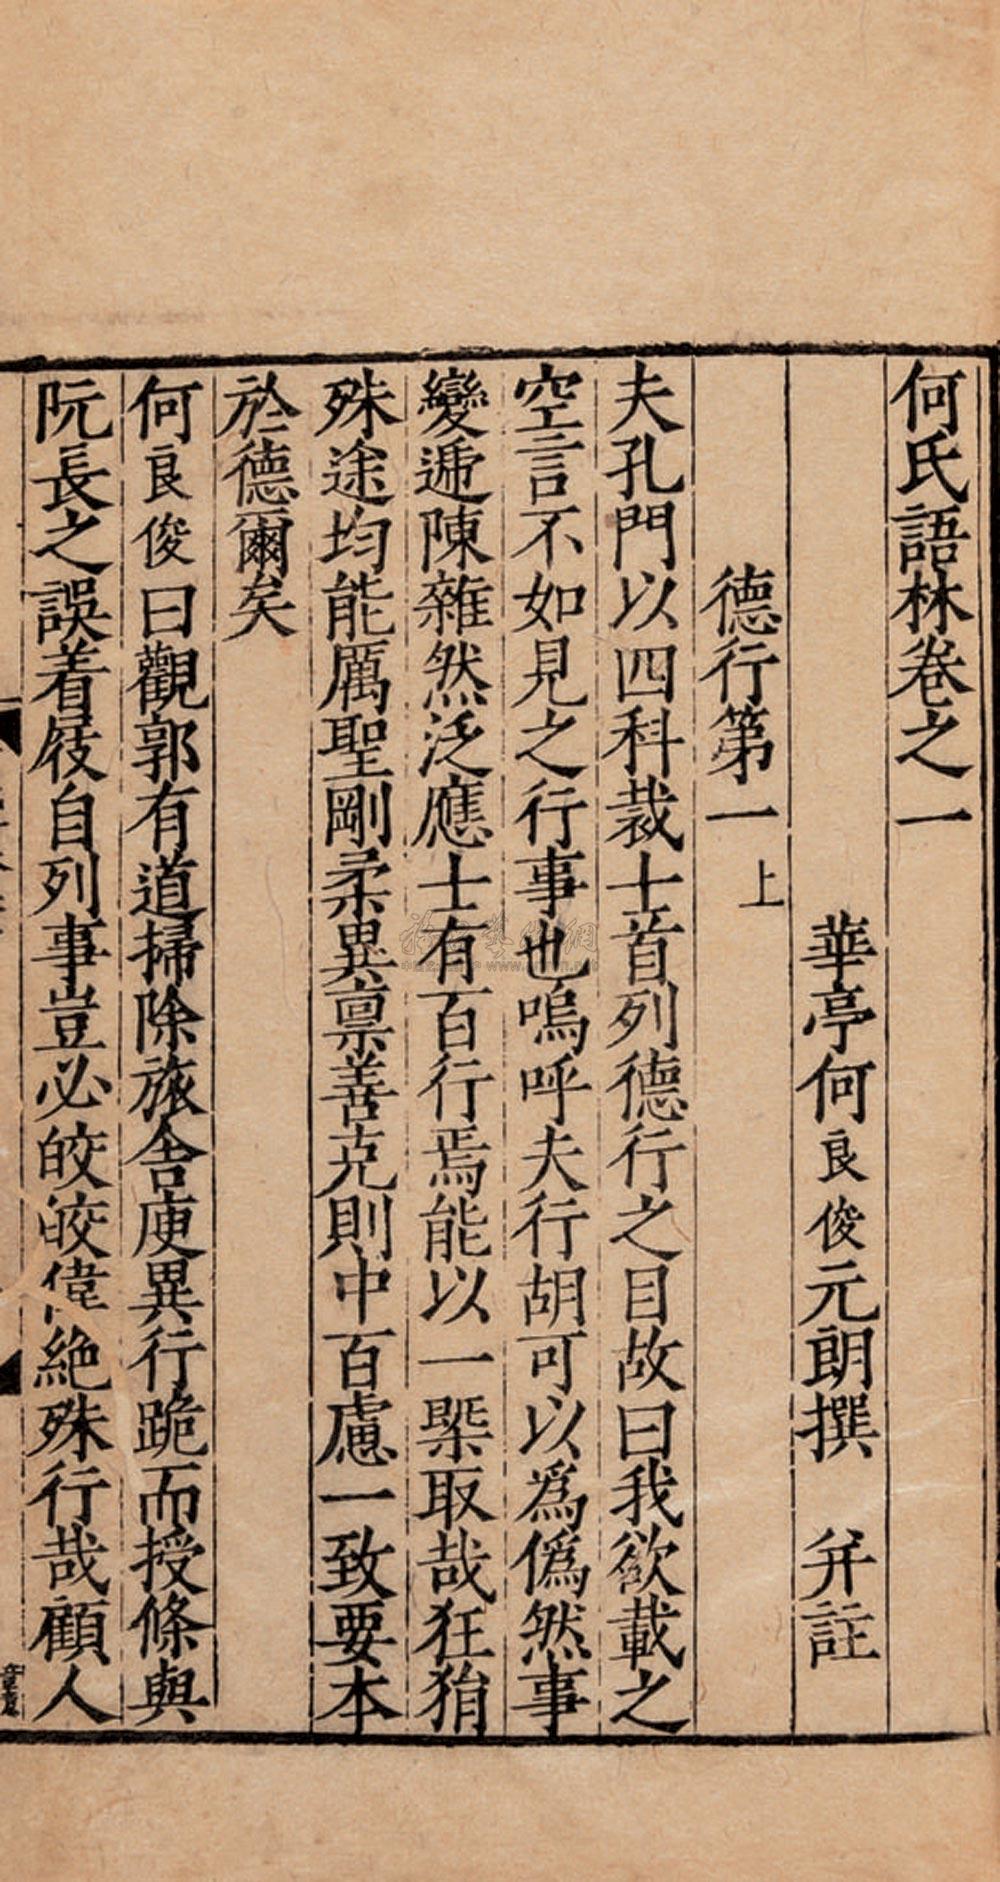 何氏語林卷之一
華亭何良俊元朗撰 并註
德行第一上
夫孔門以四科裁士首列德行之目故曰我欲載之
空言不如見之行事也嗚呼夫行胡可以為偽然事
變遞陳雜然泛應士有百行焉能以一槩取哉狂狷
殊途均能厲聖剛柔異禀善克則中百慮一致要本
於德爾矣
何良俊曰觀郭有道掃除旅舍庾異行跪而授條與
阮長之誤着屐自列事豈必皎皎偉絶殊行哉顧人